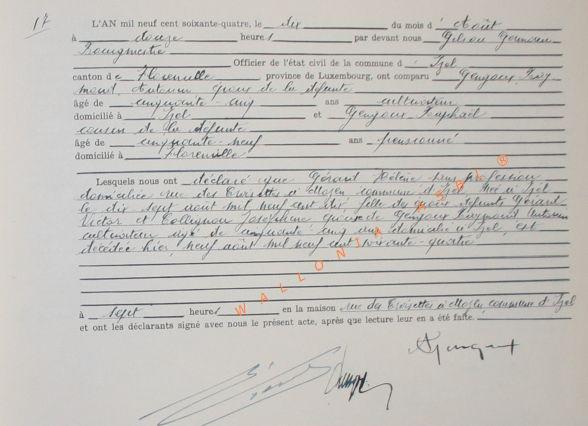 17
L'AN mil neuf cent soixante-quatre, le dix du mois d' Août
à douze heures par devant nous Gilson Germain
Bourgmestre
Officier de l'état civil de la commune d' Izel
canton de Florenville province de Luxembourg, ont comparu Gengoux, Ray
mond, Antoine époux de la défunte
âgé de cinquante-cinq ans cultivateur
domicilié à Izel et Gengoux Raphaël
cousin de la défunte
âgé de cinquante-neuf ans pensionné
domicilié à Florenville
Lesquels nous ont déclaré que Gérard Hélène sans profession
domiciliée rue des Croisettes à Moyen commune d' Izel née à Izel
le dix sept août mil neuf cent dix fille de feus défunts Gérard
Victor et Collignon Joséphine épouse de Gengoux Raymond Antoine
cultivateur âgé de cinquante cinq ans domicilié à Izel, est
décédée hier, neuf août mil neuf cent soixante-quatre
à sept heures en la maison rue des Croisettes à Moyen commune d' Izel
et ont les déclarants signé avec nous le présent acte, après que lecture leur en a été faite.
WALLONIA ASBL ®